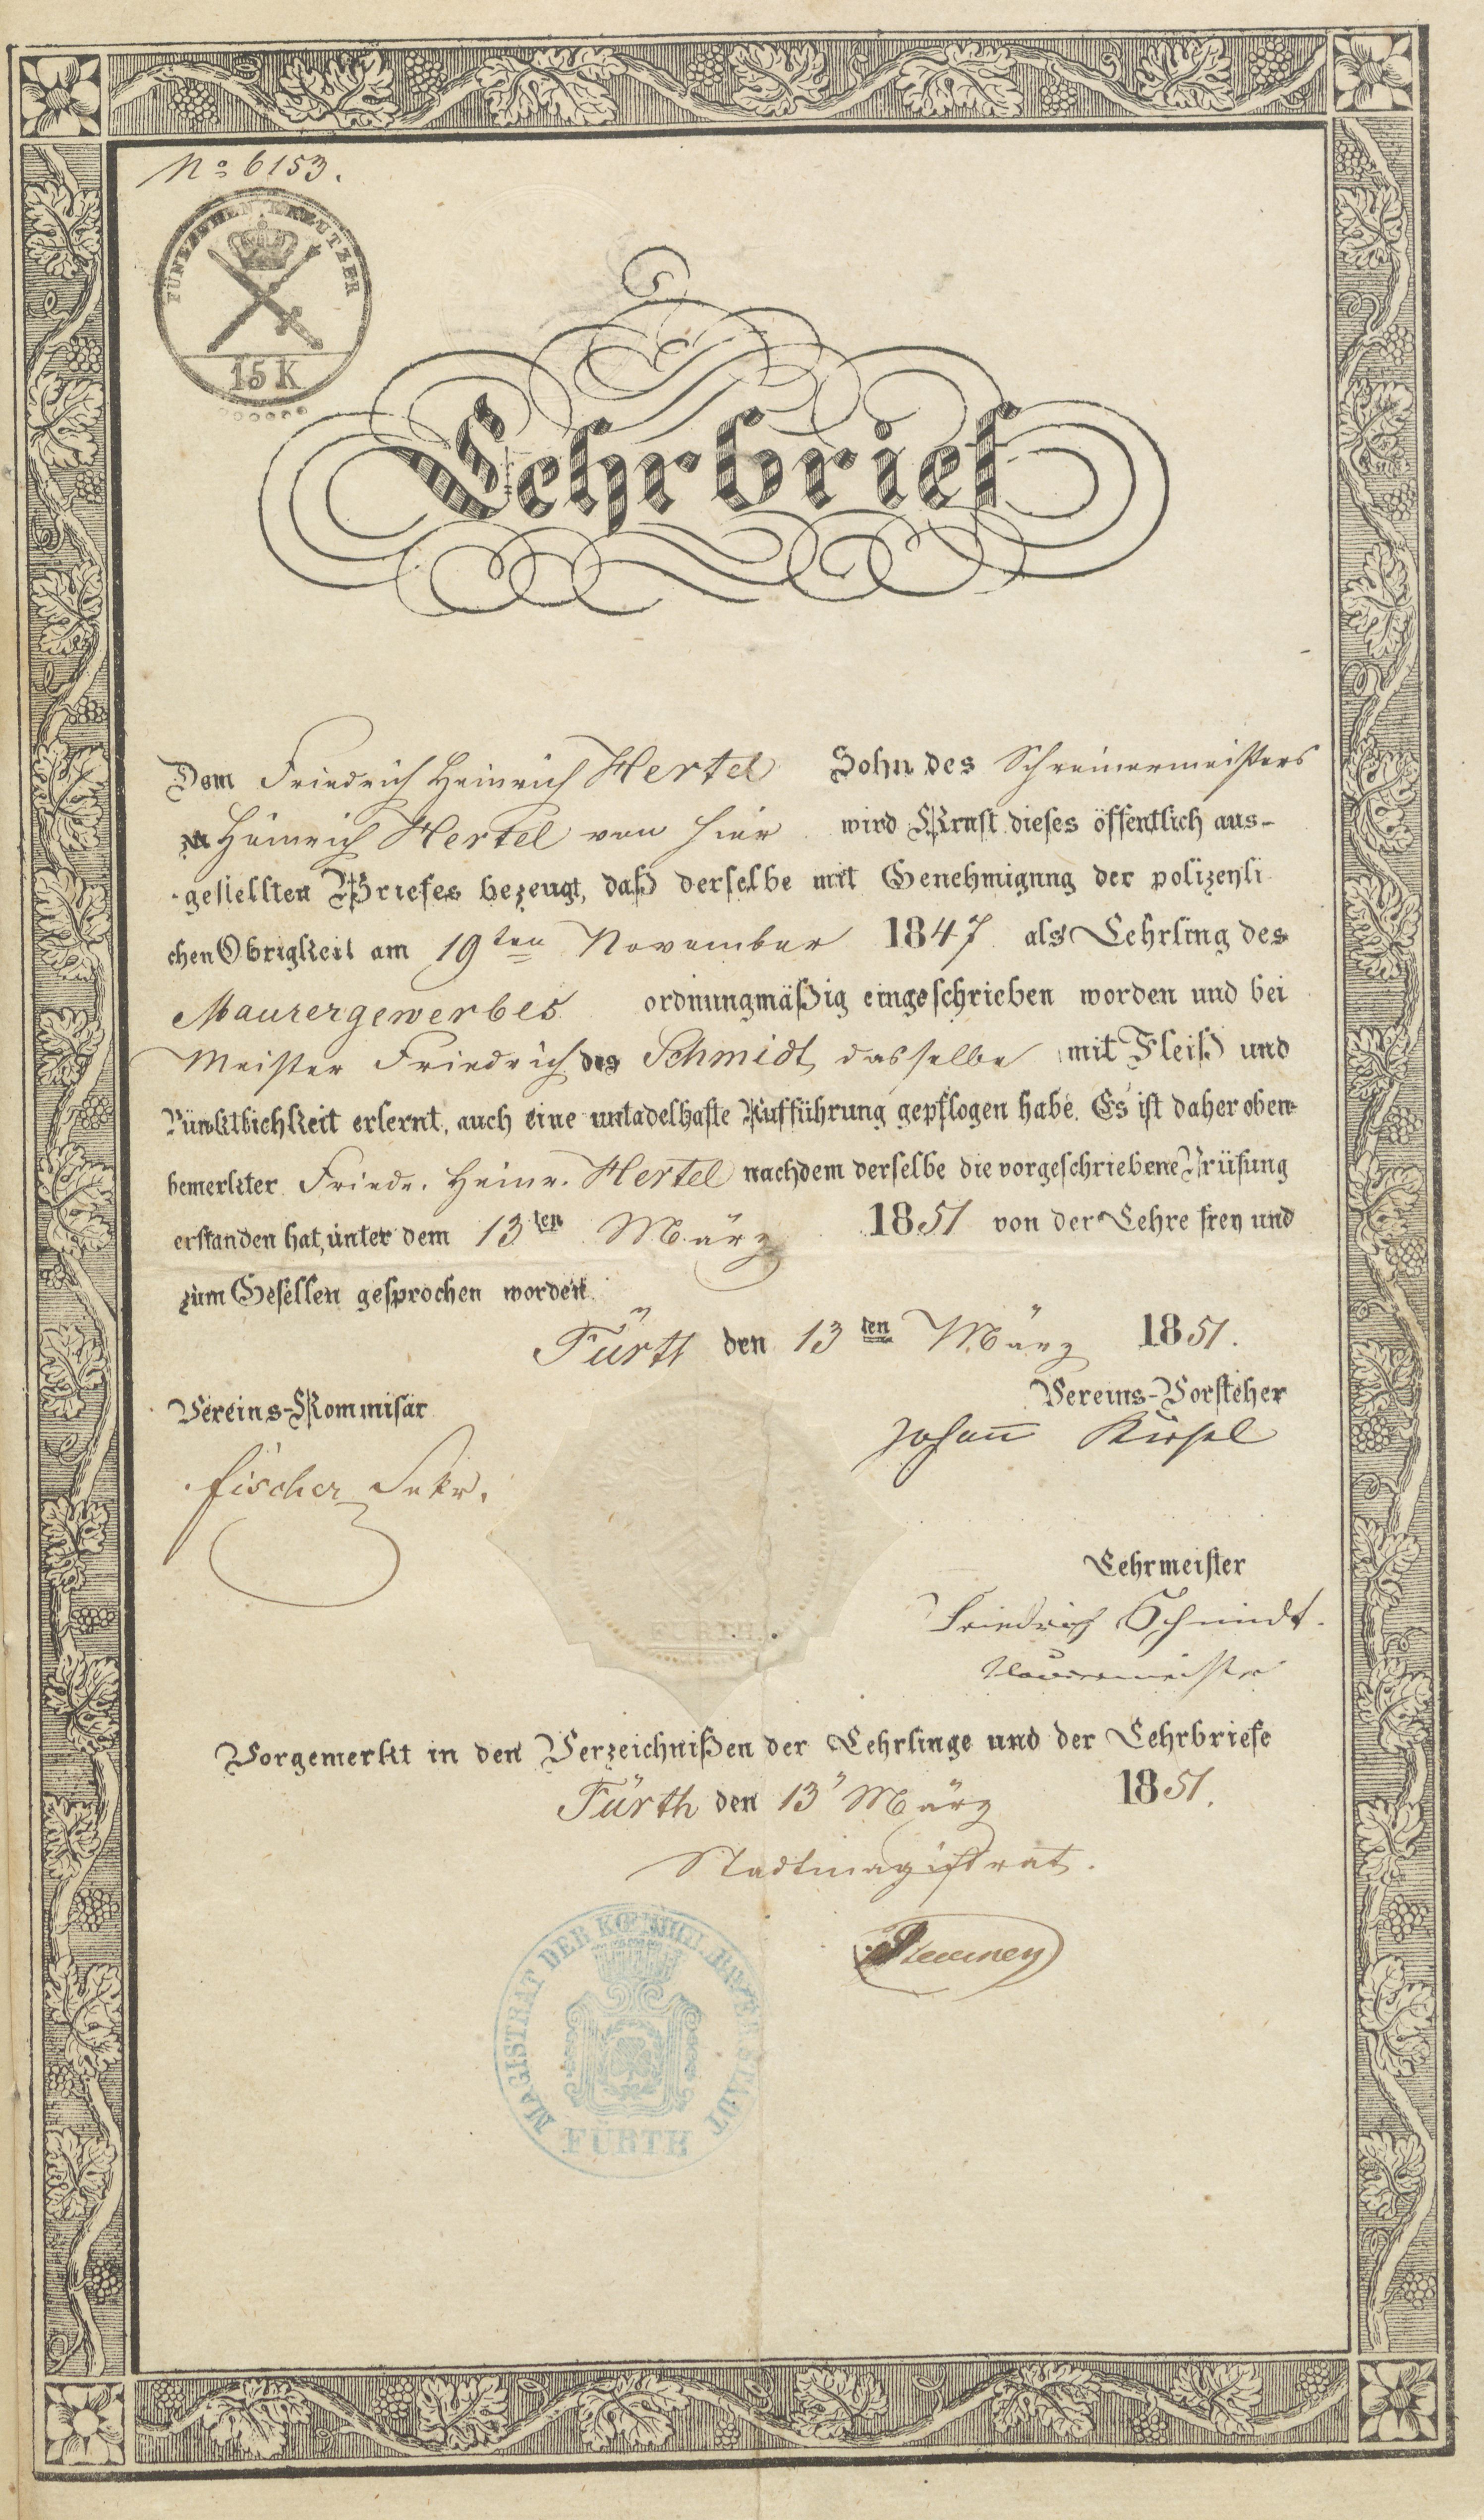 No 6153.
FÜNFZEHEN KREUTZER
15 K
Lehrbrief
Dem Friedrich Heinrich Hertel Sohn des Schreinermeisters
Heinrich Hertel von hier wird Kraft dieses öffentlich aus-
gestellten Briefes bezeugt, daß derselbe mit Genehmigung der polizeyli
chen Obrigkeit am 19ten November 1847 als Lehrling des
Maurergewerbes ordnungmäßig eingeschrieben worden und bei
Meister Friedrich des Schmidt dasselbe mit Fleiß und
Pünktlichkeit erlernt, auch eine untadelhafte Aufführung gepflogen habe. Es ist daher oben-
bemerkter Friedr. Heinr. Hertel nachdem derselbe die vorgeschriebene Prüfung
erstanden hat, unter dem 13ten März 1851 von der Lehre frey und
zum Gesellen gesprochen worden.
Fürth den 13ten März 1851.
Vereins-Kommisär
Vereins-Vorsteher
Johann
Fischer Sekr.
FÜRTH
Lehrmeister
Friedrich Schmidt.
Maurermeister
Vorgemerkt in den Verzeichnißen der Lehrlinge und der Lehrbriefe
Fürth den 13 März 1851.
Stadtmagistrat.
MAGISTRAT DER KOENIGL. BAYER. STADT
FÜRTH